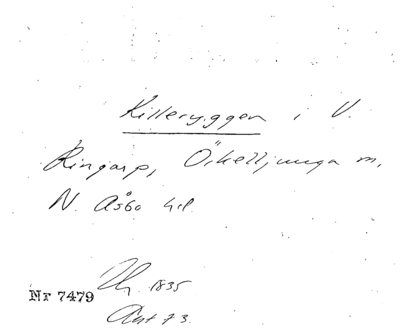 Killeryggen i V.
Ringarp, Örkelljunga sn,
N. Åsbo hd.
1835
Nr 7479
Akt 73.